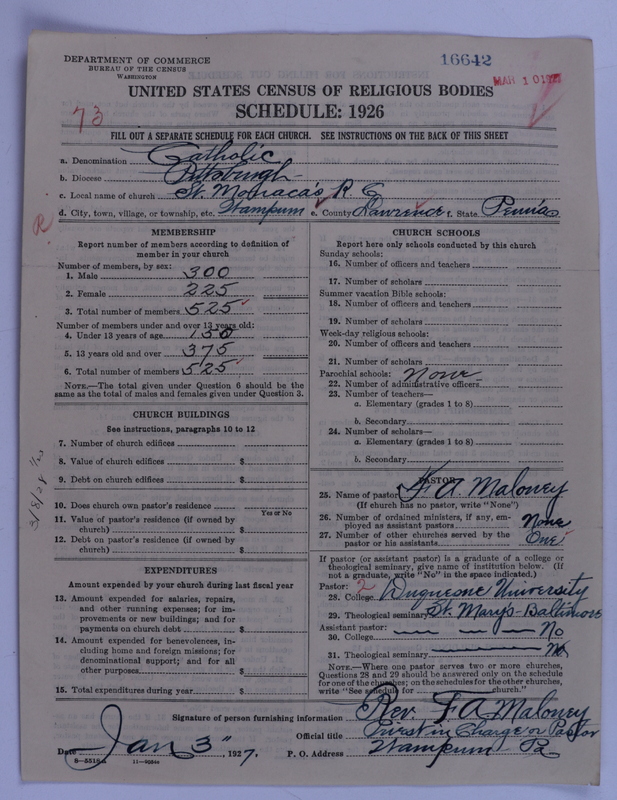 DEPARTMENT OF COMMERCE
BUREAU OF THE CENSUS
WASHINGTON
16642
MAR 10 1927
UNITED STATES CENSUS OF RELIGIOUS BODIES
SCHEDULE: 1926
73
FILL OUT A SEPARATE SCHEDULE FOR EACH CHURCH. SEE INSTRUCTIONS ON THE BACK OF THIS SHEET
a. Denomination Catholic
b. Diocese Pittsburgh
c. Local name of church St. Monaca's R C
d. City, town, village, or township, etc. Wampum e. County Lawrence f. State Penn'a
R
MEMBERSHIP
Report number of members according to definition of member in your church
Number of members, by sex:
1. Male 300
2. Female 225
3. Total number of members 525
Number of members under and over 13 years old:
4. Under 13 years of age 150
5. 13 years old and over 375
6. Total number of members 525
NOTE.—The total given under Question 6 should be same as the total of males and females given under Question 3.
CHURCH BUILDINGS
See instructions, paragraphs 10 to 12
7. Number of church edifices
8. Value of church edifices $
9. Debt on church edifices $
10. Does church own pastor's residence
Yes or No
11. Value of pastor's residence (if owned by church) $
12. Debt on pastor's residence (if owned by church) $
3/8/28
EXPENDITURES
Amount expended by your church during last fiscal year
13. Amount expended for salaries, repairs, and other running expenses; for improvements or new buildings; and for payments on church debt $
14. Amount expended for benevolences, including home and foreign missions; for denominational support; and for all other purposes $
15. Total expenditures during year $
CHURCH SCHOOLS
Report here only schools conducted by this church
Sunday schools:
16. Number of officers and teachers
17. Number of scholars
Summer vacation Bible schools:
18. Number of officers and teachers
19. Number of scholars
Week-day religious schools:
20. Number of officers and teachers
21. Number of scholars
Parochial schools: None
22. Number of administrative officers
23. Number of teachers—
a. Elementary (grades 1 to 8)
b. Secondary
24. Number of scholars—
a. Elementary (grades 1 to 8)
b. Secondary
PASTOR
25. Name of pastor F. A. Maloney
(If church has no pastor, write "None")
26. Number of ordained ministers, if any, employed as assistant pastors None
27. Number of other churches served by the pastor or his assistants One
If pastor (or assistant pastor) is a graduate of a college or theological seminary, give name of institution below. (If not a graduate, write "No" in the space indicated.)
Pastor: 2
28. College Duquesne University
29. Theological seminary St. Marys-Baltimore
Assistant pastor:
30. College No
31. Theological seminary No
NOTE.—Where one pastor serves two or more churches, Questions 28 and 29 should be answered only on the schedule for one of the churches; on the schedules for the other churches, write "See schedule for church."
Signature of person furnishing information Rev. F A Maloney
Official title Priest in Charge or Pastor
Date Jan 3" 1927. P. O. Address Wampum - Pa
11-9034